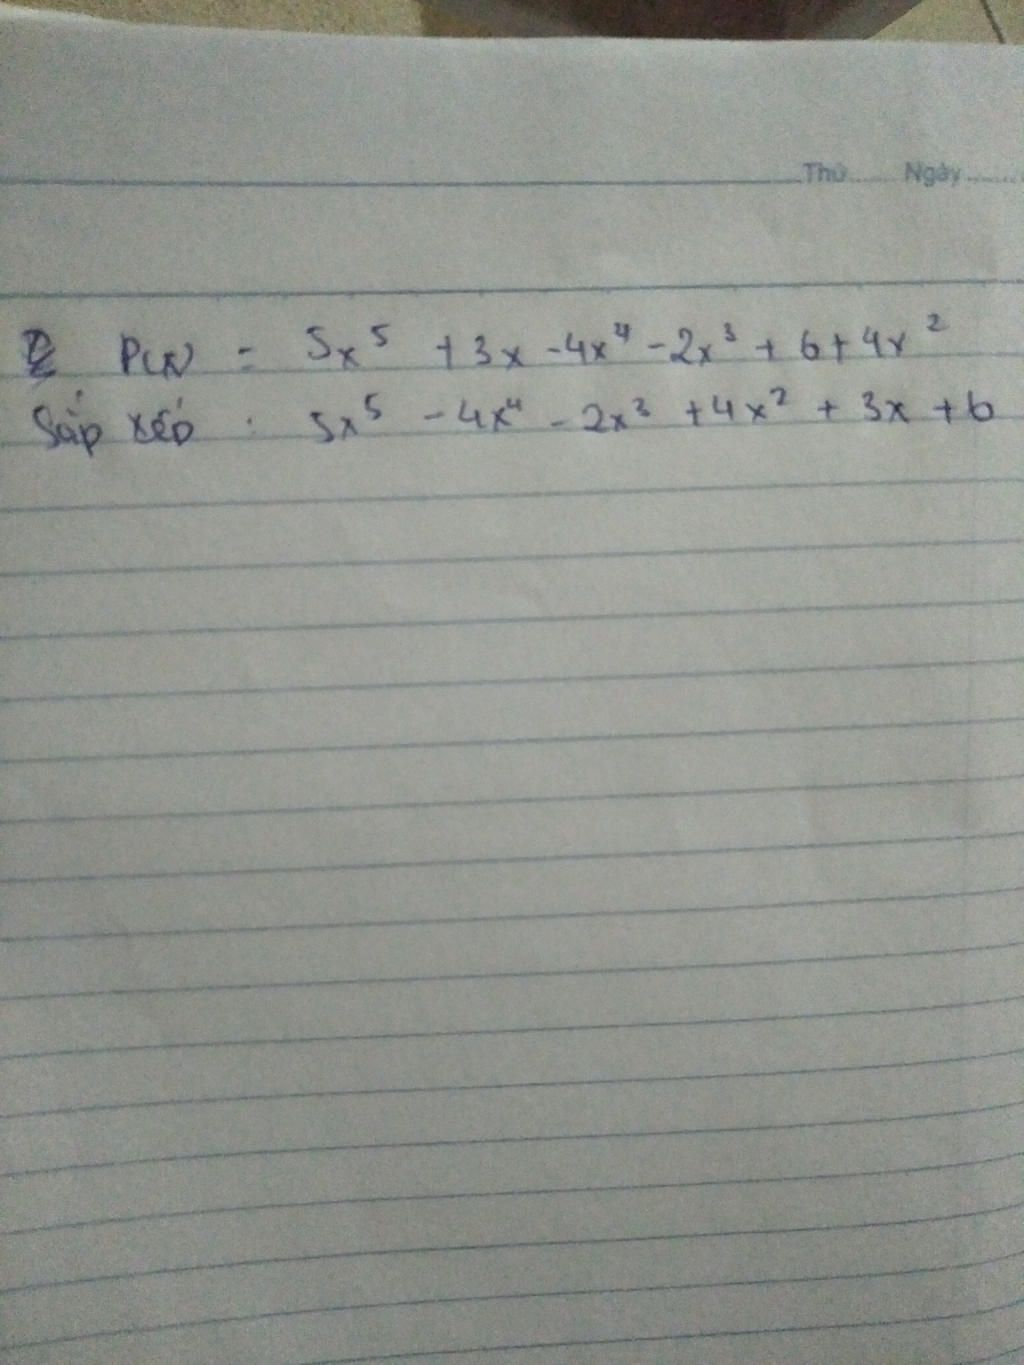 Thứ...... Ngày.......
P(x) = 5x⁵ + 3x - 4x⁴ - 2x³ + 6 + 4x²
Sắp xếp : 5x⁵ - 4x⁴ - 2x³ + 4x² + 3x + 6